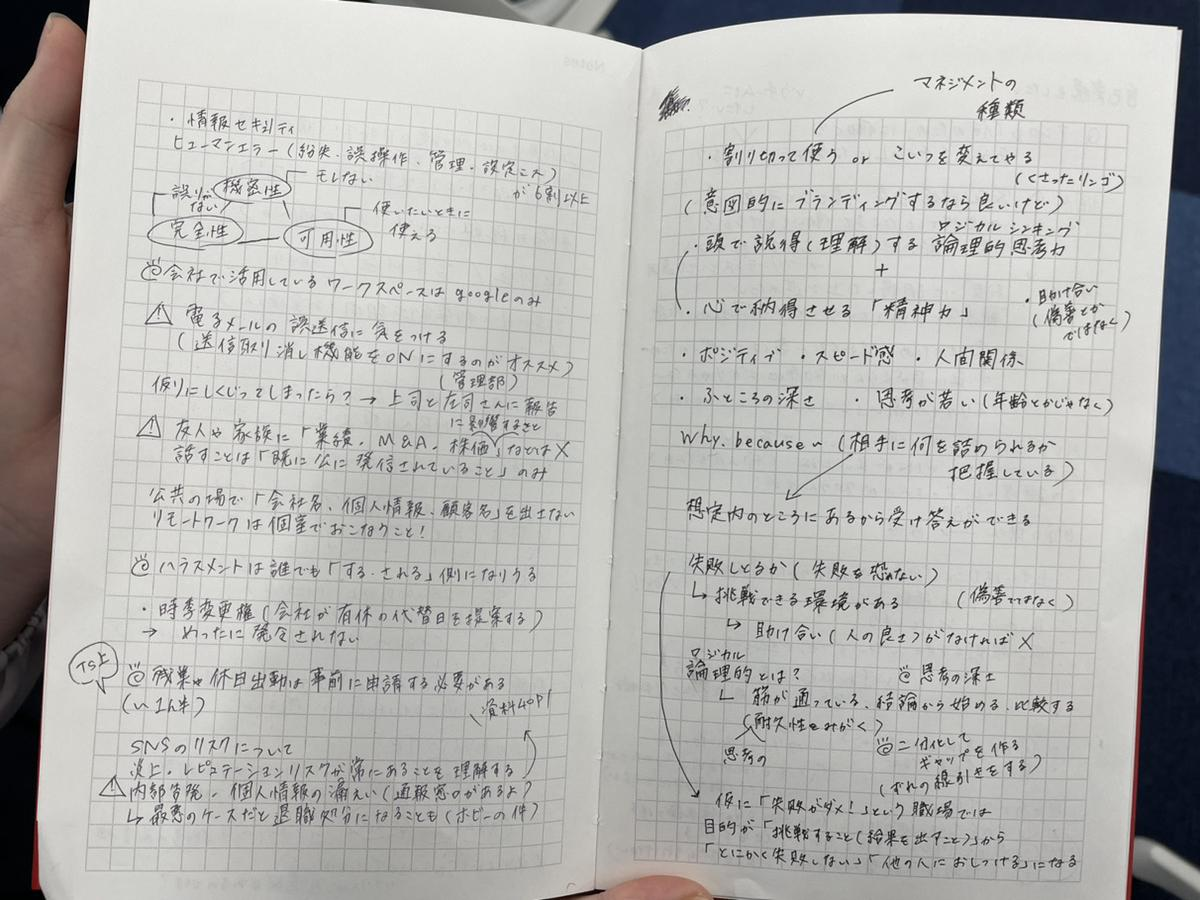 ・情報セキュリティ
ヒューマンエラー(紛失、誤操作、管理、設定ミス)
が6割以上
モレない
機密性
誤りがない
完全性
可用性
使いたいときに
使える
会社で活用しているワークスペースはgoogleのみ
⚠ 電子メールの誤送信に気をつける
(送信取り消し機能をONにするのがオススメ)
(管理部)
仮りにしくじってしまったら? → 上司と左司さんに報告
に影響すること
⚠ 友人や家族に「業績、M&A、株価」などは×
話すことは「既に公に発信されていること」のみ
公共の場で「会社名、個人情報、顧客名」を出さない
リモートワークは個室でおこなうこと!
ハラスメントは誰でも「する、される」側になりうる
・時季変更権(会社が有休の代替日を提案する)
→ めったに発令されない
TS上
残業や休日出勤は事前に申請する必要がある
資料40P
SNSのリスクについて
炎上・レピュテーションリスクが常にあることを理解する
⚠ 内部告発、個人情報の漏えい(通報窓口があるよ)
↳ 最悪のケースだと退職処分になることも(ホビーの件)
マネジメントの
種類
・割り切って使う or こいつを変えてやる
(くさったリンゴ)
(意図的にブランディングするなら良いけど)
ロジカルシンキング
・頭で説得(理解)する 論理的思考力
+
・心で納得させる「精神力」
・助け合い
(偽善とか
ではなく)
・ポジティブ ・スピード感 ・人間関係
・ふところの深さ ・思考が若い(年齢とかじゃなく)
Why、because~ (相手に何を詰められるか
把握している)
想定内のところにあるから受け答えができる
失敗しとるか(失敗を恐れない)
↳ 挑戦できる環境がある (偽善ではなく)
↳ 助け合い(人の良さ)がなければ×
ロジカル
論理的とは?
思考の深さ
↳ 筋が通っている、結論から始める、比較する
(耐久性をみがく)
思考の
二分化して
ギャップを作る
(ずれの線引きをする)
仮に「失敗がダメ!」という職場では
目的が「挑戦すること(結果を出すこと)」から
「とにかく失敗しない」「他の人におしつける」になる